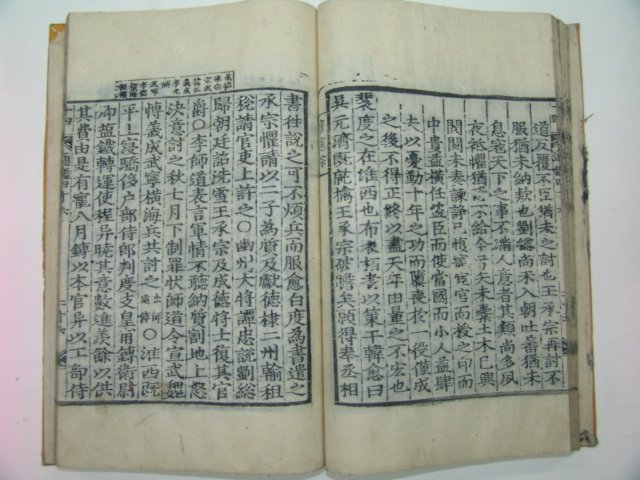 道反覆不臣猶未之討也王承宗再討不
服猶未納款也劉總尚不入朝吐蕃猶未
衰寇天下之事不滿人意者其類尚多夙
夜祗懼猶恐不給今寻矣未羣土木已興
閔閔未奏諫諍已憤宦官而授之印而
中貴益橫任益臣而使當國而小人益肆
夫以憂勤十年之功而隳喪於一役僅成
之後不得正終以盡天年由量之不宏也
裴度之在淮西也布衣栢耆以策干韓愈曰
吳元濟旣就擒王承宗破膽矣願得奉丞相
書徃說之可不煩兵而服愈白度為書遣之
承宗懼請以二子為質及獻德棣二州輸租
稅請官吏上許之○幽州大將譚忠說劉緫
歸朝廷詔洗雪王承宗及成德將士復其官
爵○李師道表言軍情不聽納質割地上怒
決意討之秋七月下制罪狀師道令宣武魏
博義成武寧橫海兵共討之○淮西旣
平上寖驕侈戶部侍郎判度支皇甫鎛衛尉
卿鹽鐵轉運使程异曉其意數進羨餘以供
其費由是有寵八月鎛以本官异以工部侍